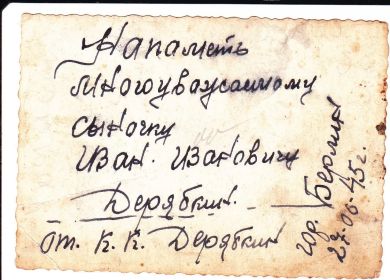 Напаметь
многоуважаемому
сыночку
Иван. Ивановичу
Дерябкин.
от. К. К. Дерябкин
гор. Берлин
27.06.45 г.